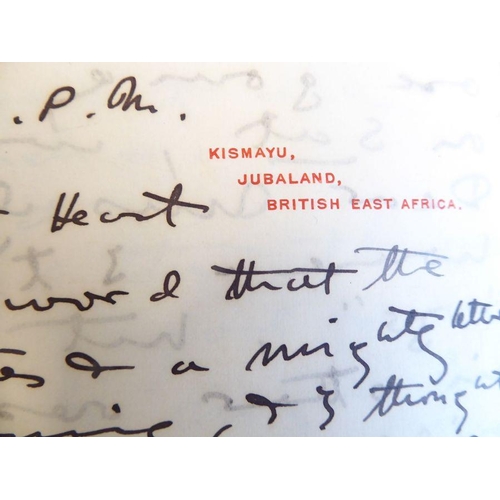 .P.M.
KISMAYU,
JUBALAND,
BRITISH EAST AFRICA.
Heart
word that the
& a mighty letter
, & I thought